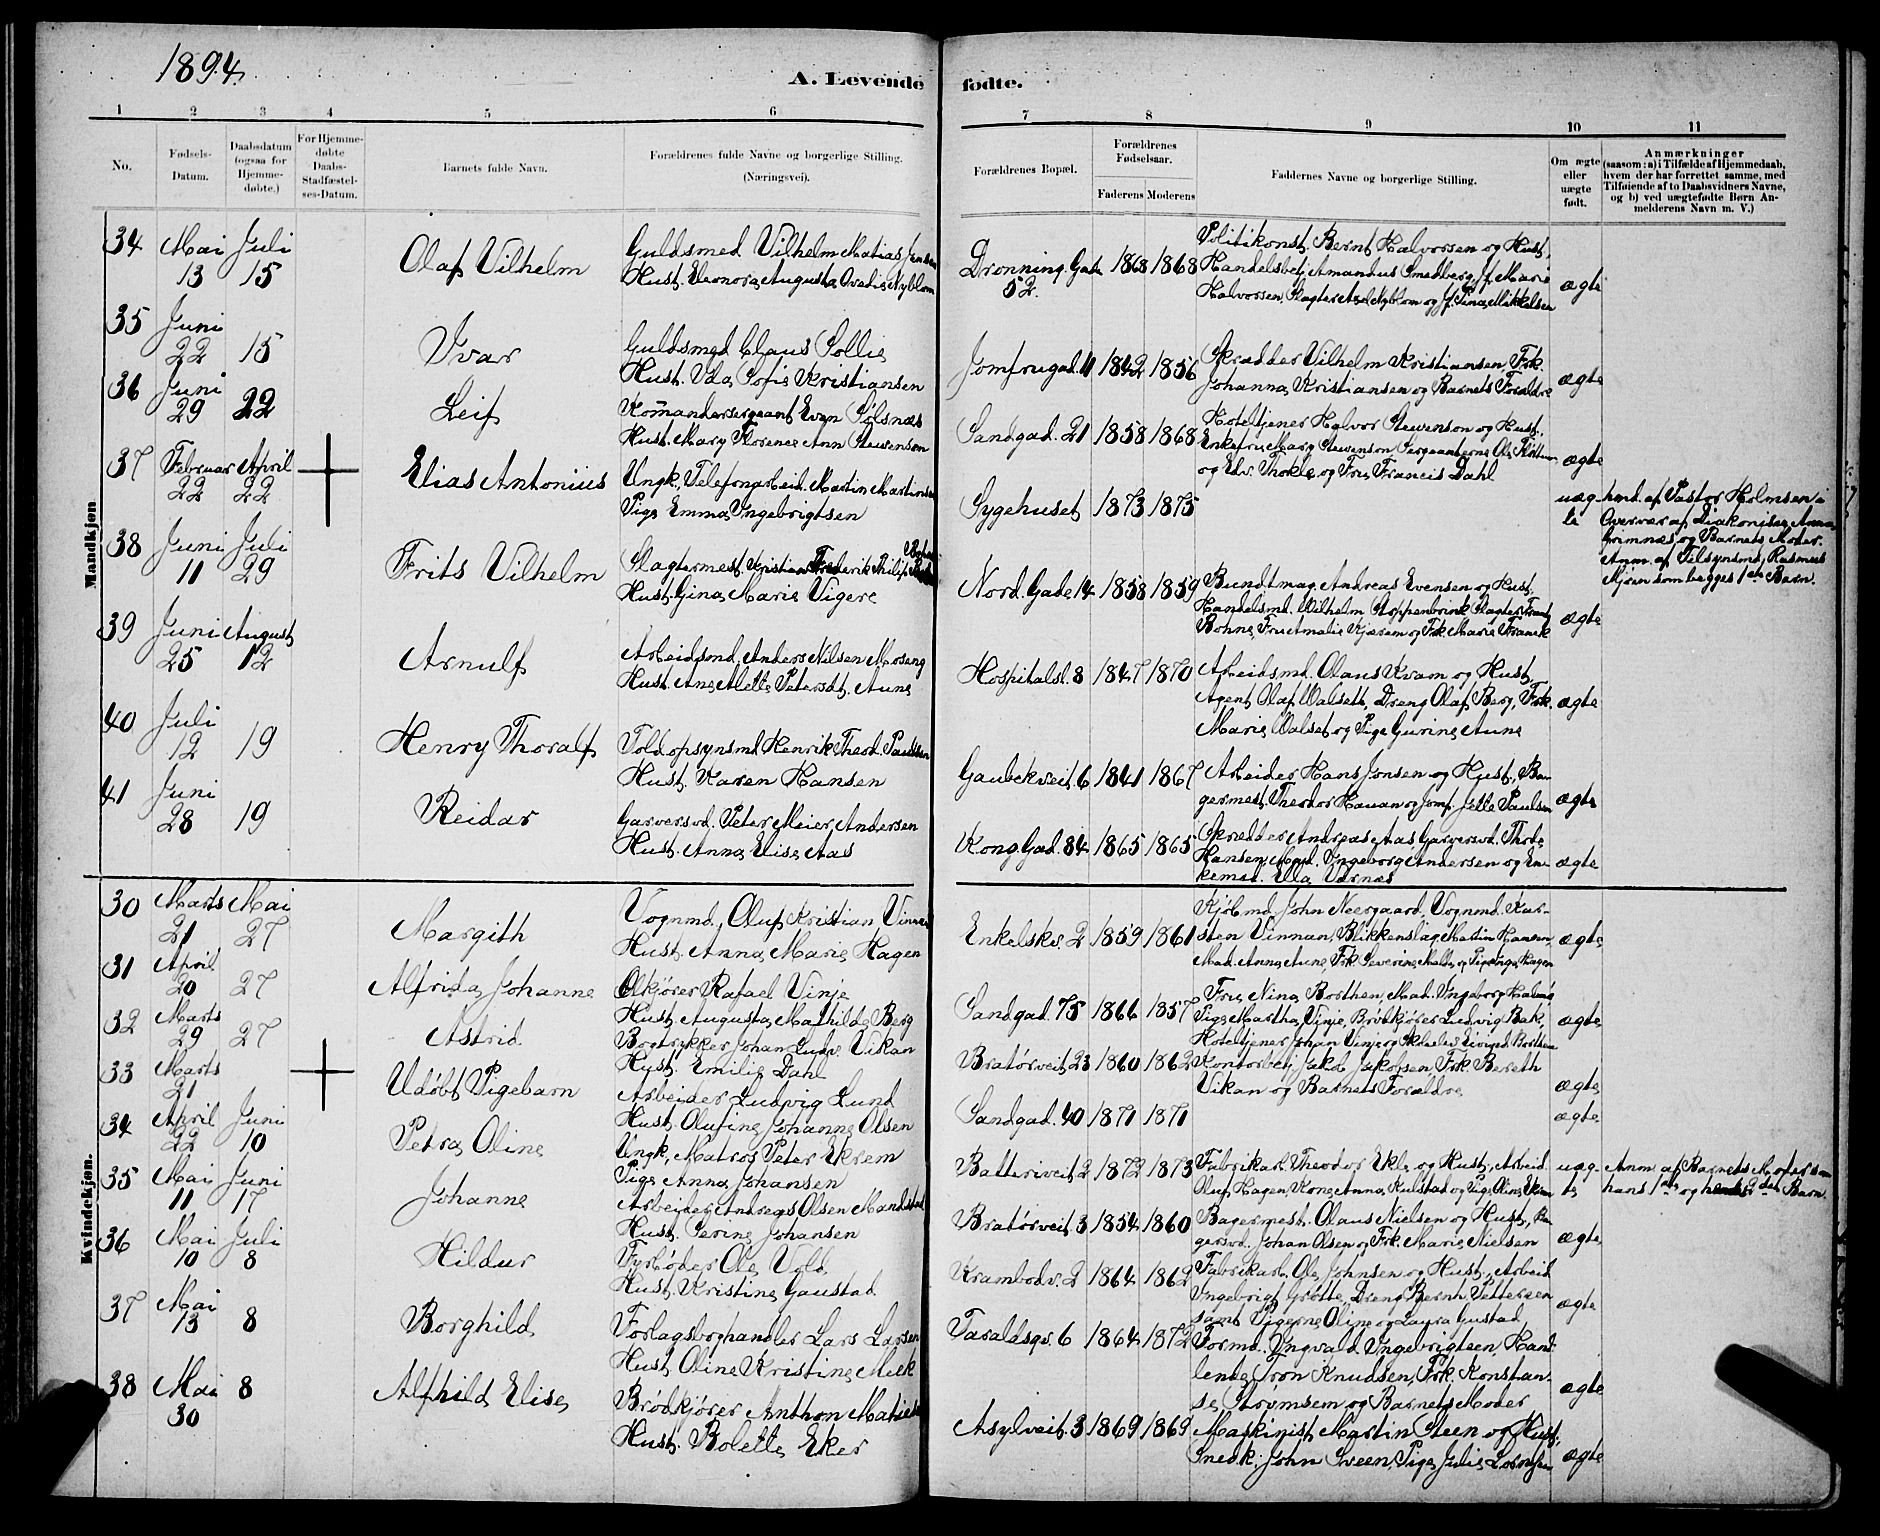 1894.
A. Levende fødte.
1 2 3 4 5 6 7 8 9 10 11
No.
Fødsels-
Datum.
Daabsdatum
(ogsaa for
Hjemme-
døbte.)
For Hjemme-
døbte
Daabs-
Stadfæstel-
ses-Datum.
Barnets fulde Navn.
Forældrenes fulde Navne og borgerlige Stilling.
(Næringsvei).
Forældrenes Bopæl.
Forældrenes
Fødselsaar.
Faderens Moderens
Faddernes Navne og borgerlige Stilling.
Om ægte
eller
uægte
født.
Anmærkninger
(saasom: a) i Tilfælde af Hjemmedaab,
hvem der har forrettet samme, med
Tilføiende af to Daabsvidners Navne,
og b) ved uægtefødte Børn An-
melderens Navn m. V.)
Mandkjøn
34 Mai 13 Juli 15
Olaf Vilhelm
Guldsmed Vilhelm Matias Jensen
Hust. Eleonora Augusta Nyblom
Dronning. Gade 52. 1868 1868
Politikonst. Bernt Halvorsen og Hust,
Handelsbetj. Amandus Smedberg, J. Marie
Halvorsen, Slagter Axel Nyblom og J. Tina Mikkelsen
ægte
35 Juni 22 15
Ivar
Guldsmed Claus Sollie
Hust. Ida Sofie Kristiansen
Jomfrugad. 11 1842 1856
Skrædder Vilhelm Kristiansen, Frk.
Johanna Kristiansen og Barnets Forældre
ægte
36 Juni 29 22
Leif
Komandersergeant Even Solsnæs
Hust. Mary Florence Ann Stevenson
Sandgad. 21 1858 1868
Hoteltjener Halvor Stevenson og Hust.
Enkefru Marg. Stevenson Sergeanterne Ole
og Edv. Thokle og Fru Francis Dahl
ægte
37 Februar 22 April 22
Elias Antonius
Ungk. Telefonarbeid. Martin Martinsen
Pige Emma Ingebrigtsen
Sygehuset 1873 1875
uæg-
te
hmd. af Pastor Holmsen i
Overvær af Diakonisse Anna
Grimnæs og Barnets Moder.
Anm. af Tilsynsmd. Rasmus
Mjøen som begges 1ste Barn.
38 Juni 11 Juli 29
Frits Vilhelm
Slagtermest. Kristian Frederik Philip
Hust. Gina Marie Vigere
Nord. Gade 14 1858 1859
Bundtmag. Andreas Evensen og Hust.
Handelsmd. Wilhelm Stoppenbrink Slagter Frants
Bohne, Fru Amalie Kjærem og Frk. Marie Franck
ægte
39 Juni 25 August 12
Arnulf
Arbeidsmd. Anders Nilsen Moseng
Hust. Ane Alette Petersdt. Aune
Hospitalsl. 8 1847 1870
Arbeidsmd. Olaus Kvam og Hust,
Agent Olaf Walseth, Dreng Olaf Berg, Frk.
Marie Walset og Pige Gurine Aune
ægte
40 Juli 12 19
Henry Thoralf
Toldopsynsmd. Henrik Theod. Paulsen
Hust. Karen Hansen
Gaubekveit. 6 1841 1867
Arbeider Hans Jonsen og Hust, Ba-
germest. Theodor Hauan og Jomf. Jette Paulsen
ægte
41 Juni 28 19
Reidar
Garversvd. Peter Meier Andersen
Hust. Anna Elise Aas
Kong. Gad. 84 1865 1865
Skrædder Andreas Aas Garversvd. Thode
Hansen, Mad. Ingeborg Andersen og En-
kemad. Ella Værnæs
ægte
Kvindekjøn.
30 Marts 21 Mai 27
Margith
Vognmd. Oluf Kristian Vinnan
Hust. Anna Marie Hagen
Enkelskv. 2 1859 1861
Kjøbmd. John Neergaard, Vognmd. Kar-
sten Vinnan, Blikkenslag. Martin Hansen,
Mad. Anna Aune, Frk. Severine Melde og Pige Inga Hagen
ægte
31 April 20 27
Alfrida Johanne
Ølkjører Rafael Vinje
Hust. Augusta Mathilde Berg
Sandgad. 75 1866 1857
Fru Nina Borthen, Mad. Ingeborg
Pige Martha Vinje, Brødkjører Ludvig Bak,
Hoteltjener Johan Vinje og Skoleelev Eivind Borthen
ægte
32 Marts 29 27
Astrid
Bogtrykker Johan Ludv. Vikan
Hust. Emilie Dahl
Bratørveit. 23 1860 1862
Kontorbetj. Jakob Jakobsen, Frk. Bereth
Vikan og Barnets Forældre
ægte
33 Marts 21
Udøbt Pigebarn
Arbeider Ludvig Lund
Hust. Olufine Johanna Olsen
Sandgad. 40 1871 1871
ægte
34 April 22 Juni 10
Petra Oline
Ungk, Matros Peter Ekrem
Pige Anna Johansen
Batteriveit. 2 1872 1873
Fabrikarb. Theodor Ekle og Hust, Arbeid.
Oluf Hagen, Kone Anna Kulstad og Pige Oline Ekrem
uæg-
te
Anm. af Barnets Moder som
hans 1ste og hendes 2det Barn.
35 Mai 11 Juni 17
Johanne
Arbeider Andreas Olsen Mandstad
Hust. Serine Johansen
Bratørveit. 3 1854 1860
Bagermest. Olaus Nielsen og Hust, Ba-
gersvd. Johan Olsen og Frk. Marie Nielsen
ægte
36 Mai 10 Juli 8
Hildur
Fyrbøder Ole Vold
Hust. Kristine Gaustad
Krambodv. 2 1864 1862
Fabrikarb. Ole Johnsen og Hust, Arbeid
Ingebrigt Grøtte, Dreng Bernh. Pettersen
samt Pigerne Oline og Laura Gustad
ægte
37 Mai 13 8
Borghild
Forlagsboghandler Lars Larsen
Hust. Oline Kristine Melk
Taraldsgv. 6 1864 1872
Formd. Ingvald Ingebrigtsen, Hand-
lende Tron Knudsen, Frk. Konstan-
se Strømsem og Barnets Moder
ægte
38 Mai 30 8
Alfhild Elise
Brødkjører Anthon Matiesen
Hust. Bolette Eker
Asylveit. 3 1869 1869
Maskinist Martin Steen og Hust,
Snedk. John Sveen, Pige Julie Lorntsen
ægte